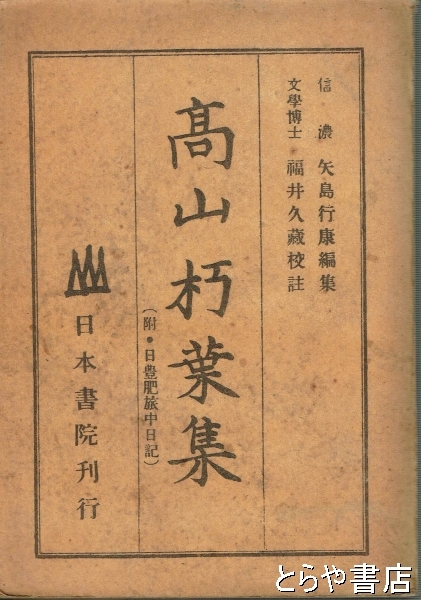 信濃 矢島行康編集
文學博士 福井久藏校註
髙山朽葉集
（附・日豊肥旅中日記）
日本書院刊行
とらや書店